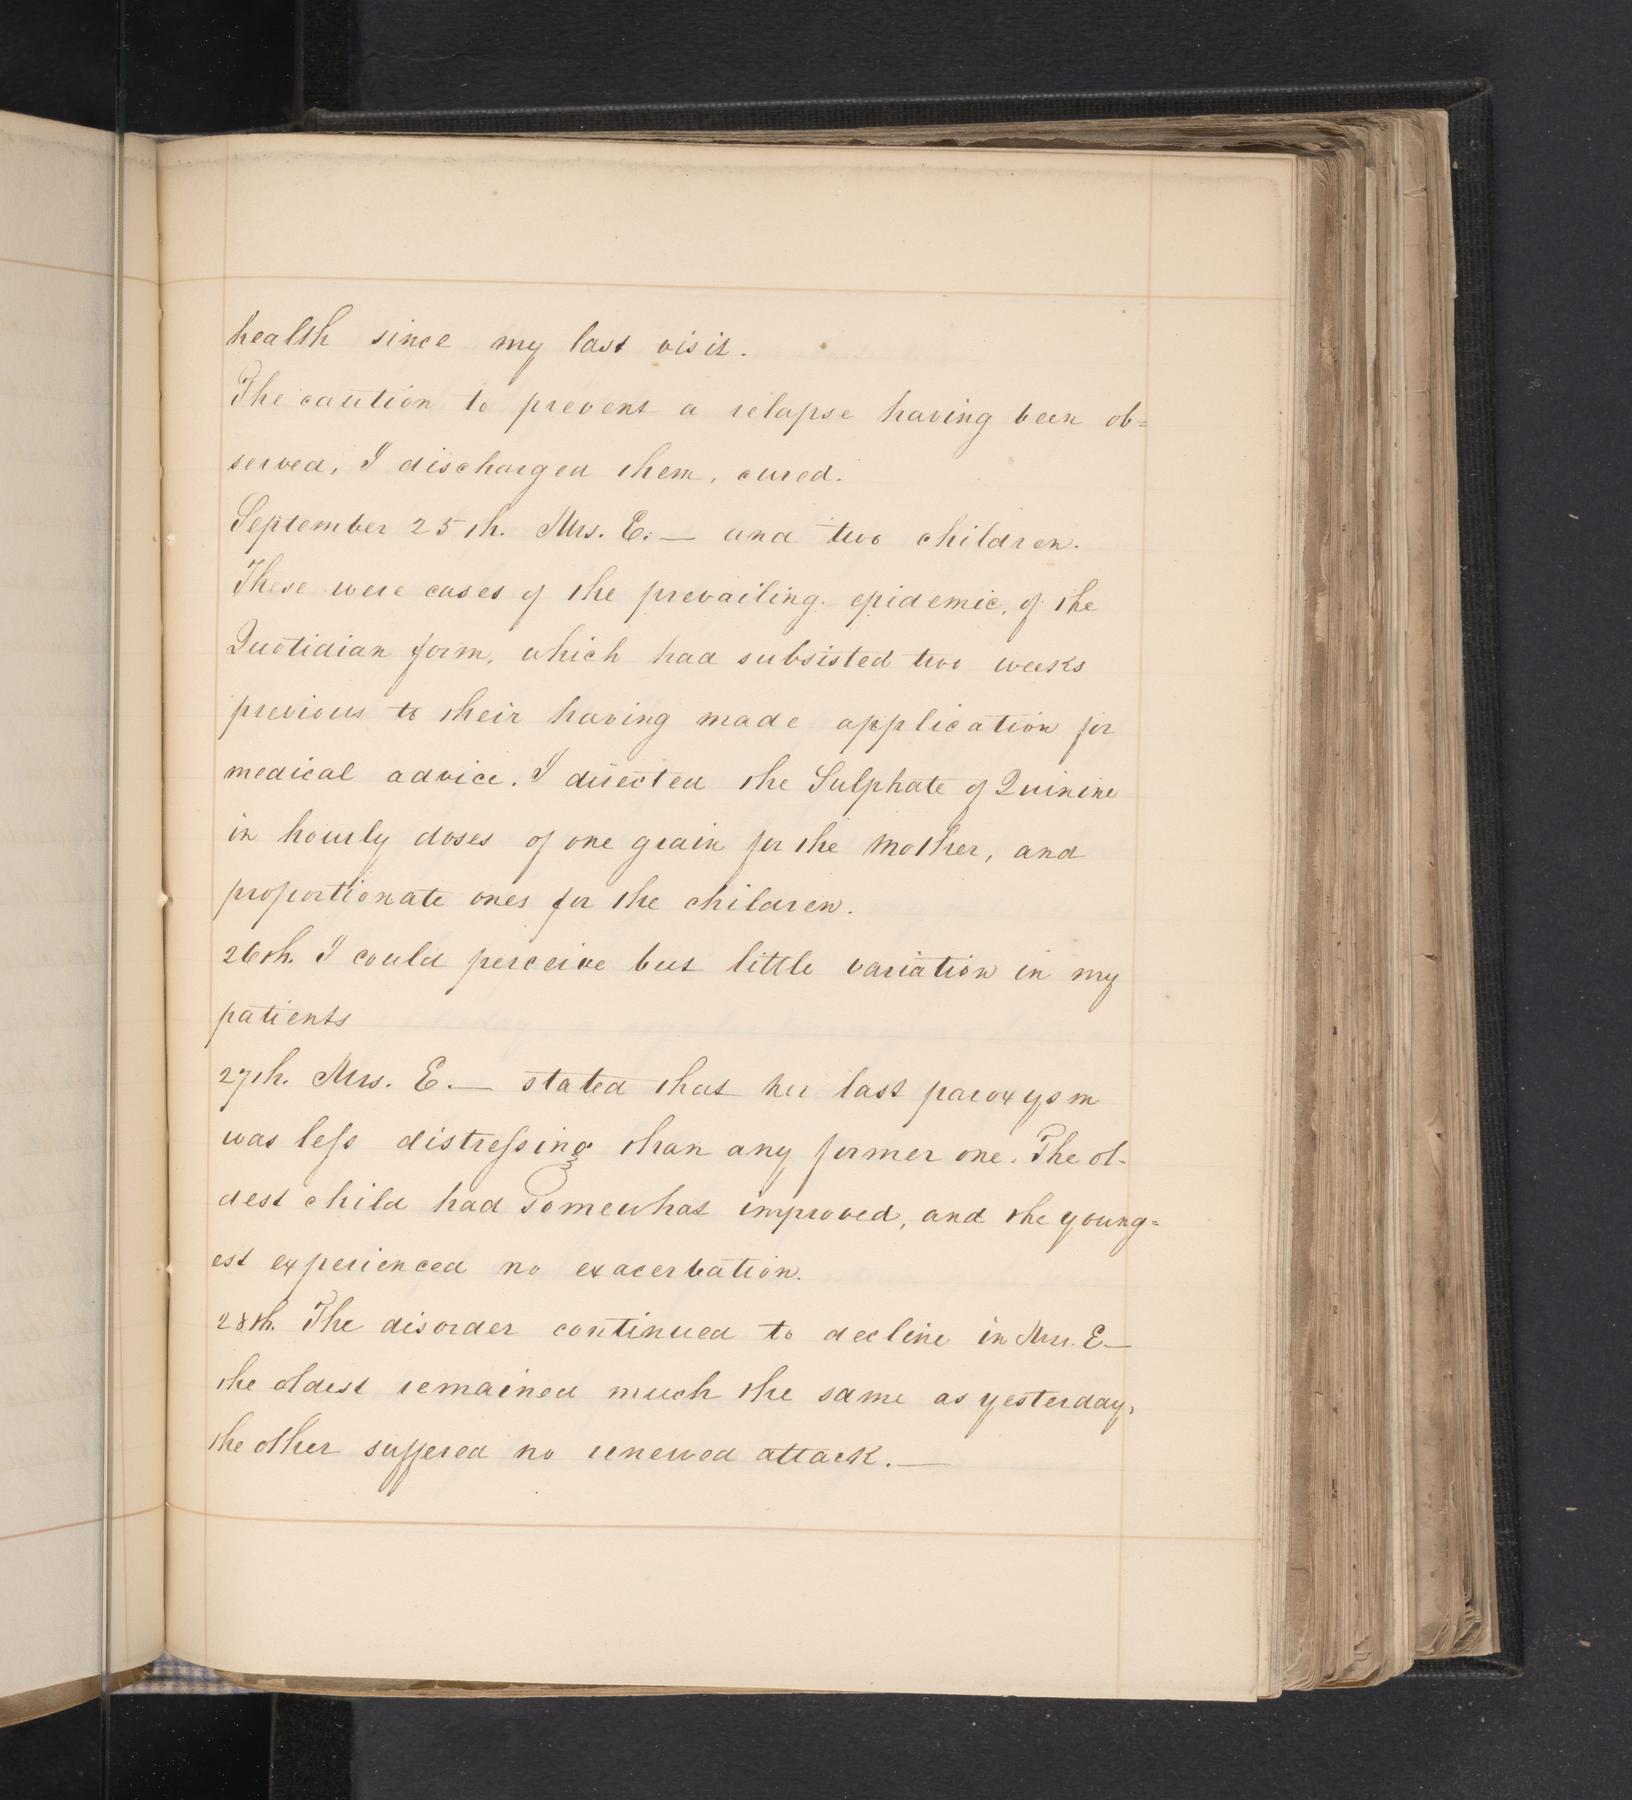 health since my last visit.
The caution to prevent a relapse having been ob=
served, I discharged them, cured.
September 25th. Mrs. E. — and two children.
These were cases of the prevailing epidemic, of the
Quotidian form, which had subsisted two weeks
previous to their having made application for
medical advice. I directed the Sulphate of Quinine
in hourly doses of one grain for the mother, and
proportionate ones for the children.
26th. I could perceive but little variation in my
patients
27th. Mrs. E. — stated that her last paroxysm
was leſs distreſsing than any former one. The ol-
dest child had somewhat improved, and the young=
est experienced no exacerbation.
28th. The disorder continued to decline in Mrs. E—
the oldest remained much the same as yesterday,
the other suffered no renewed attack. —